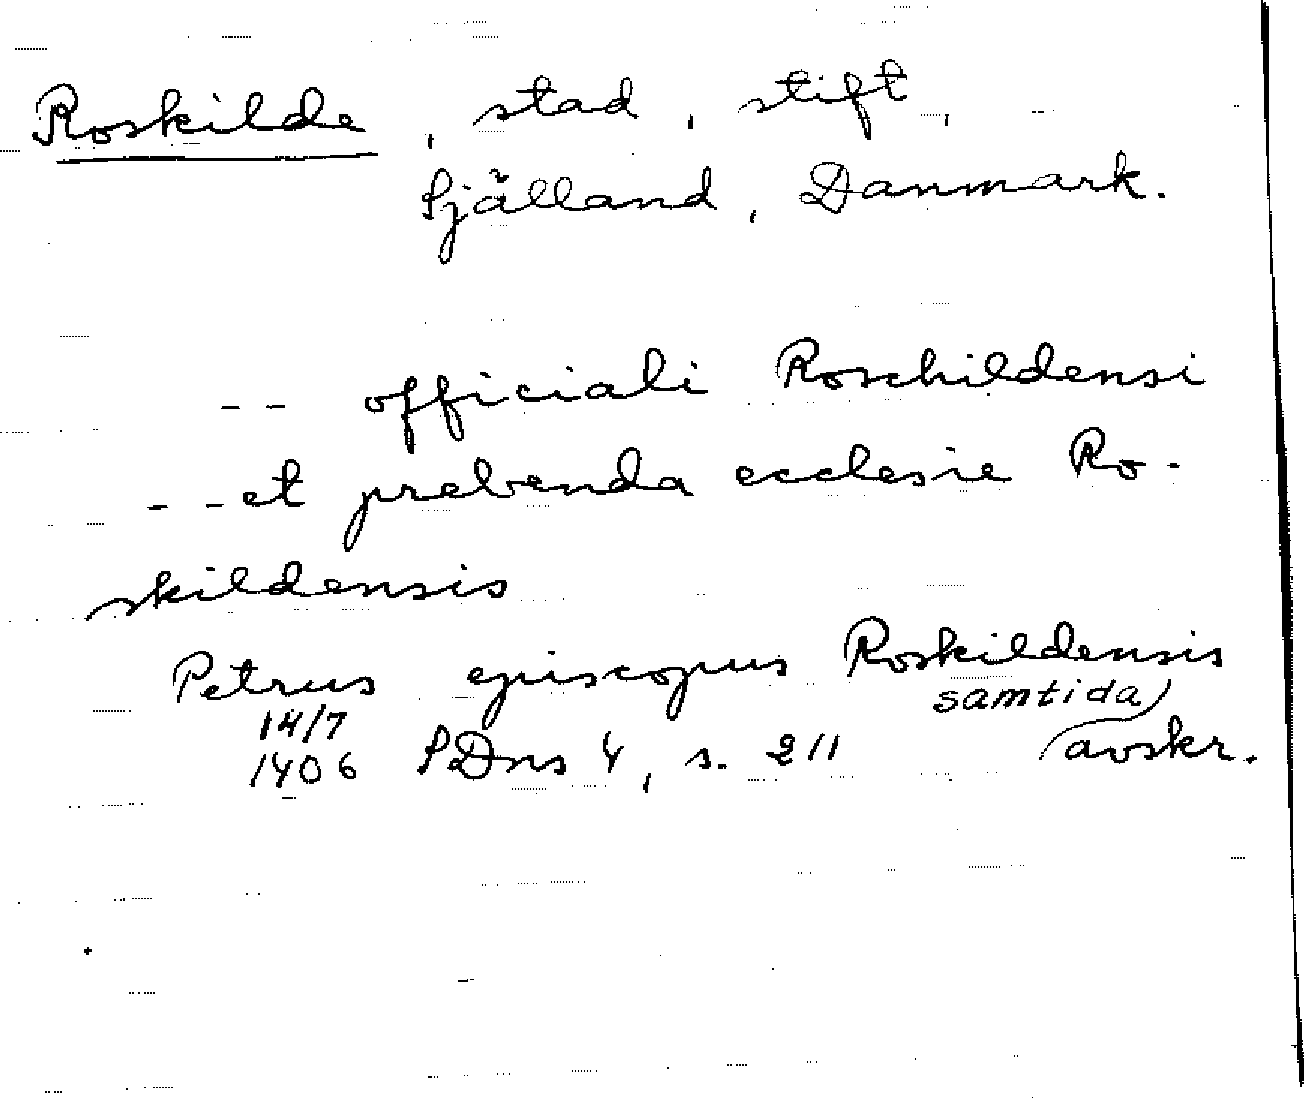 Roskilde, stad, stift,
Själland, Danmark.
-- officiali Roschildensi
-- et prebenda ecclesie Ro-
skildensis
Petrus episcopus Roskildensis
14/7 samtida
1406 SDns 4, s. 211 avskr.